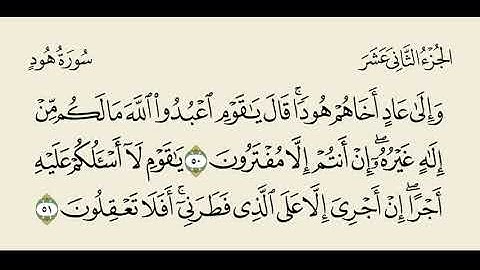 الجزء الثاني عشر سورة هود
وَإِلَىٰ عَادٍ أَخَاهُمْ هُودًا ۚ قَالَ يَاقَوْمِ اعْبُدُوا اللَّهَ مَا لَكُم مِّنْ
إِلَٰهٍ غَيْرُهُ ۖ إِنْ أَنتُمْ إِلَّا مُفْتَرُونَ ٥٠ يَاقَوْمِ لَا أَسْئَلُكُمْ عَلَيْهِ
أَجْرًا ۖ إِنْ أَجْرِيَ إِلَّا عَلَى الَّذِي فَطَرَنِي ۚ أَفَلَا تَعْقِلُونَ ٥١